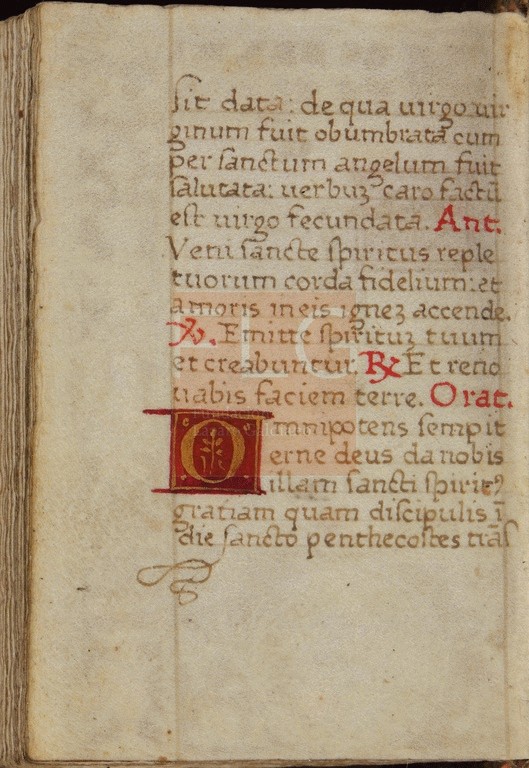 sit data: de qua uirgo uir
ginum fuit obumbrata cum
per sanctum angelum fuit
salutata: uerbuʒ caro factū
est uirgo fecundata. Ant.
Veni sancte spiritus reple
tuorum corda fidelium: et
amoris in eis igneʒ accende.
℣. Emitte spirituʒ tuum
et creabuntur. ℟ Et reno
uabis faciem terre. Orat.
Omnipotens sempit
erne deus da nobis
illam sancti spiritꝰ
gratiam quam discipulis ī
die sancto penthecostes trās